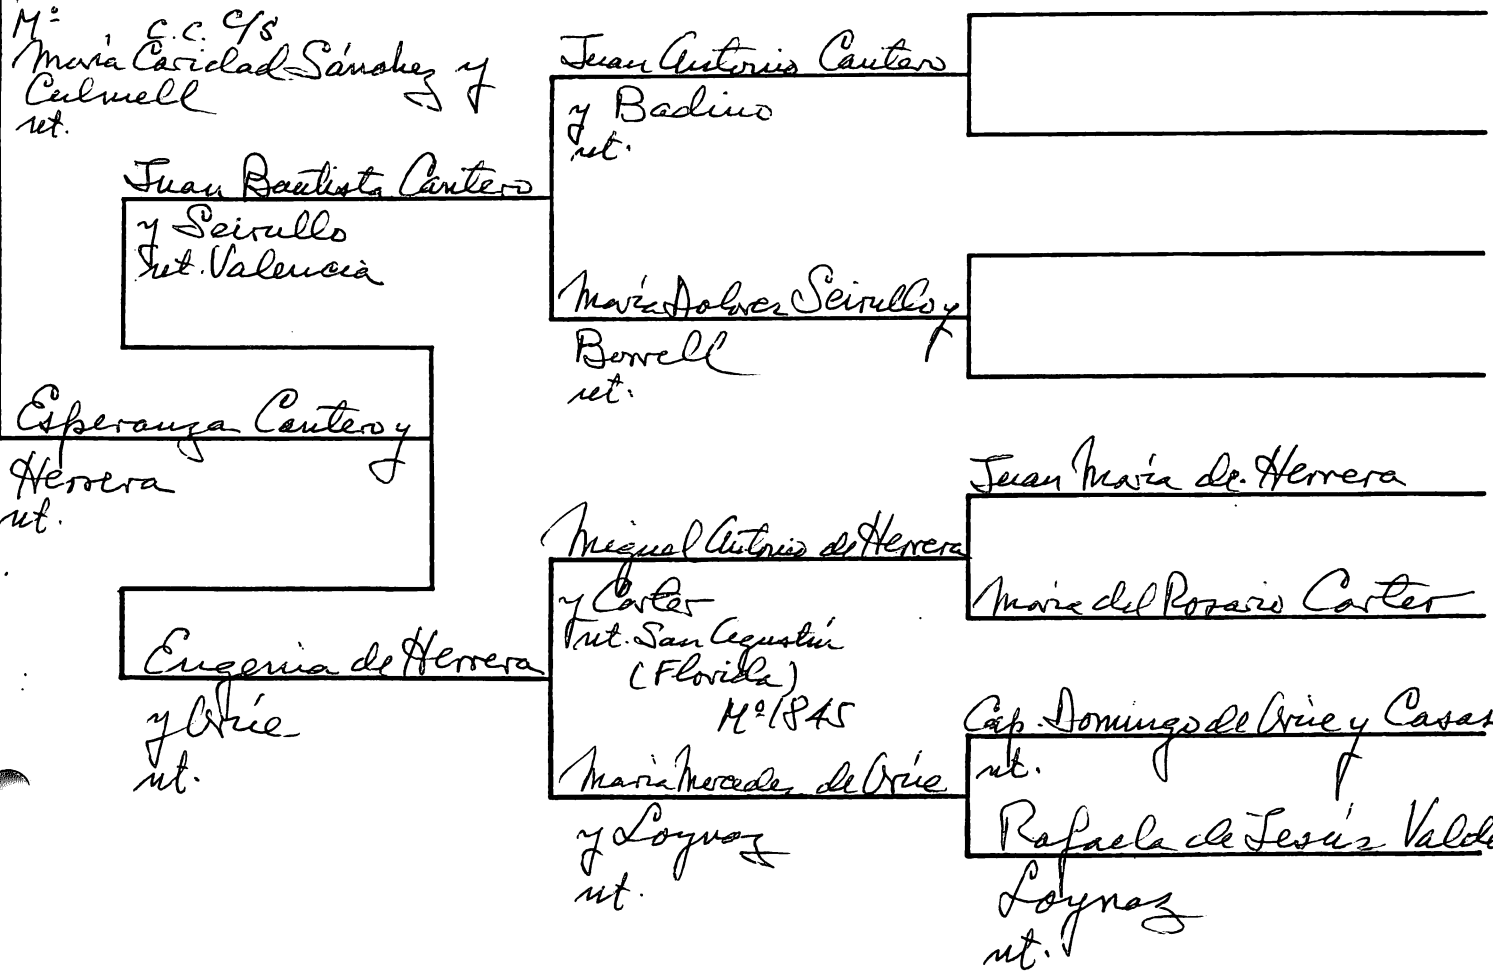 Mº c.c. c/s
María Caridad Sánchez y
Culmell
nt.
Juan Bautista Cantero
y Seirullo
nt. Valencia
Esperanza Cantero y
Herrera
nt.
Eugenia de Herrera
y Orúe
nt.
Juan Antonio Cantero
y Badino
nt.
María Dolores Seirullo y
Borrell
nt.
Miguel Antonio de Herrera
y Carter
nt. San Agustín
(Florida)
Mº 1845
María Mercedes de Orúe
y Loynaz
nt.
Juan María de Herrera
María del Rosario Carter
Cap. Domingo de Orúe y Casas
nt.
Rafaela de Jesús Valdé
Loynaz
nt.